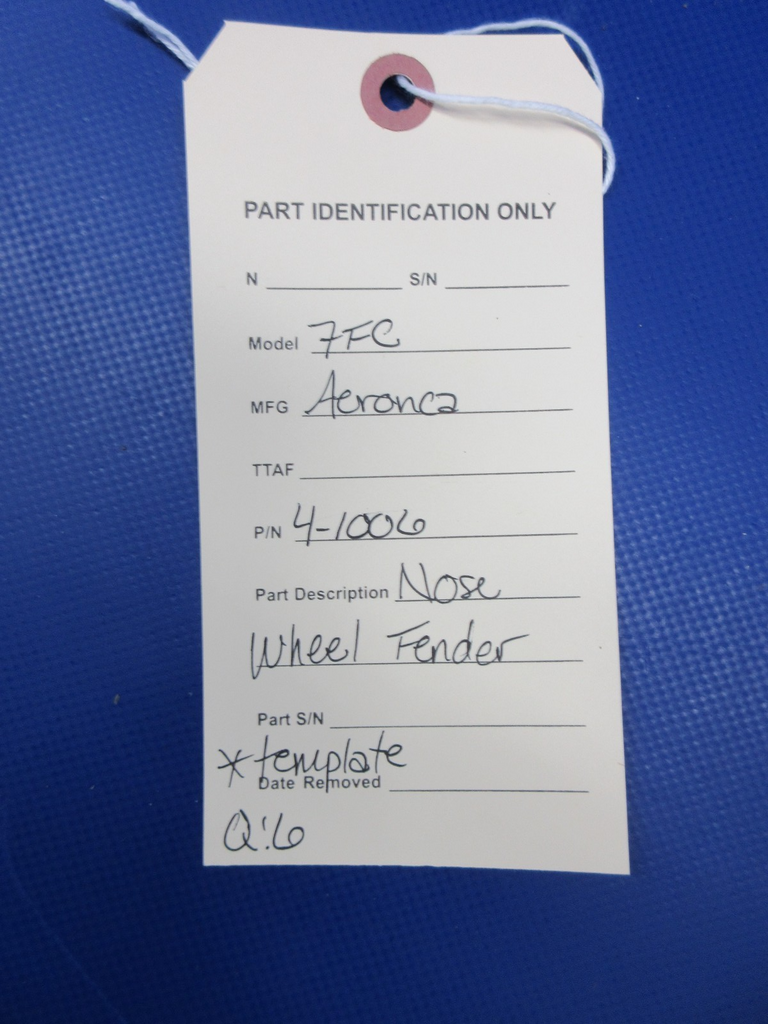 PART IDENTIFICATION ONLY
N S/N
Model 7FC
MFG Aeronca
TTAF
P/N 4-1006
Part Description Nose
Wheel Fender
Part S/N
*template
Date Removed
Q:6